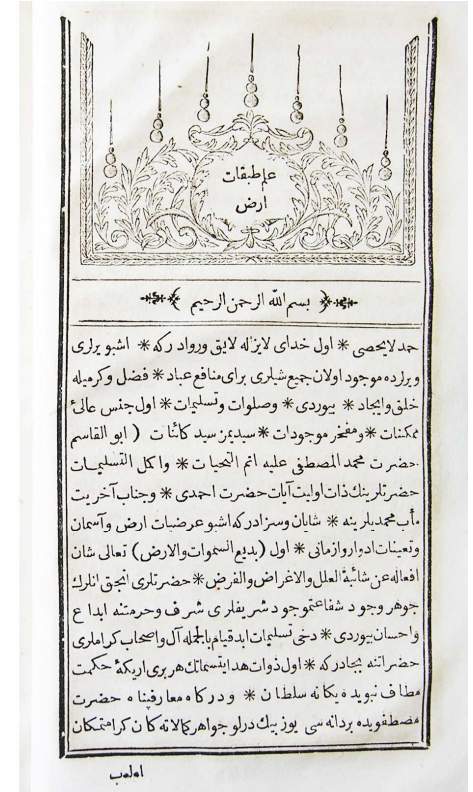 علم طبقات
ارض
بسم الله الرحمن الرحيم
حمد لايحصى * اول خداى لايزاله لايق وروادركه * اشبو يرلرى
ويرلرده موجود اولان جميع شيلرى براى منافع عباد * فضل وكرميله
خلق وايجاد * بيوردى * وصلوات وتسليمات * اول جنس عالئ
ممكنات * ومفخر موجودات * سيديمز سيد كائنات ( ابو القاسم
حضرت محمد المصطفى عليه اتم التحيات * واكل التسليمات
حضرتلرينك ذات اوليت آيات حضرت احمدى * وجناب آخريت
مأب محمديلرينه * شايان وسزادركه اشبو عرضيات ارض وآسمان
وتعينات ادوار وازمانى * اول (بديع السموات والارض) تعالى شان
افعاله عن شائبة العلل والاغراض والفرض * حضرتلرى انجق انلرك
جوهر وجود شفاعتموجود شريفلرى شرف وحرمتنه ابداع
واحسان بيوردى * دخى تسليمات ابدقيام بالجمله آل واصحاب كراملرى
حضراتنه بجادركه * اول ذوات هدايتسماتك هربرى اريكۀ حكمت
مطاف نبويده يكانه سلطان * ودركاه معارفپناه حضرت
مصطفويده بردانه سى يوز بيك درلو جواهر كمالانه كان كرامتمكان
اولوب